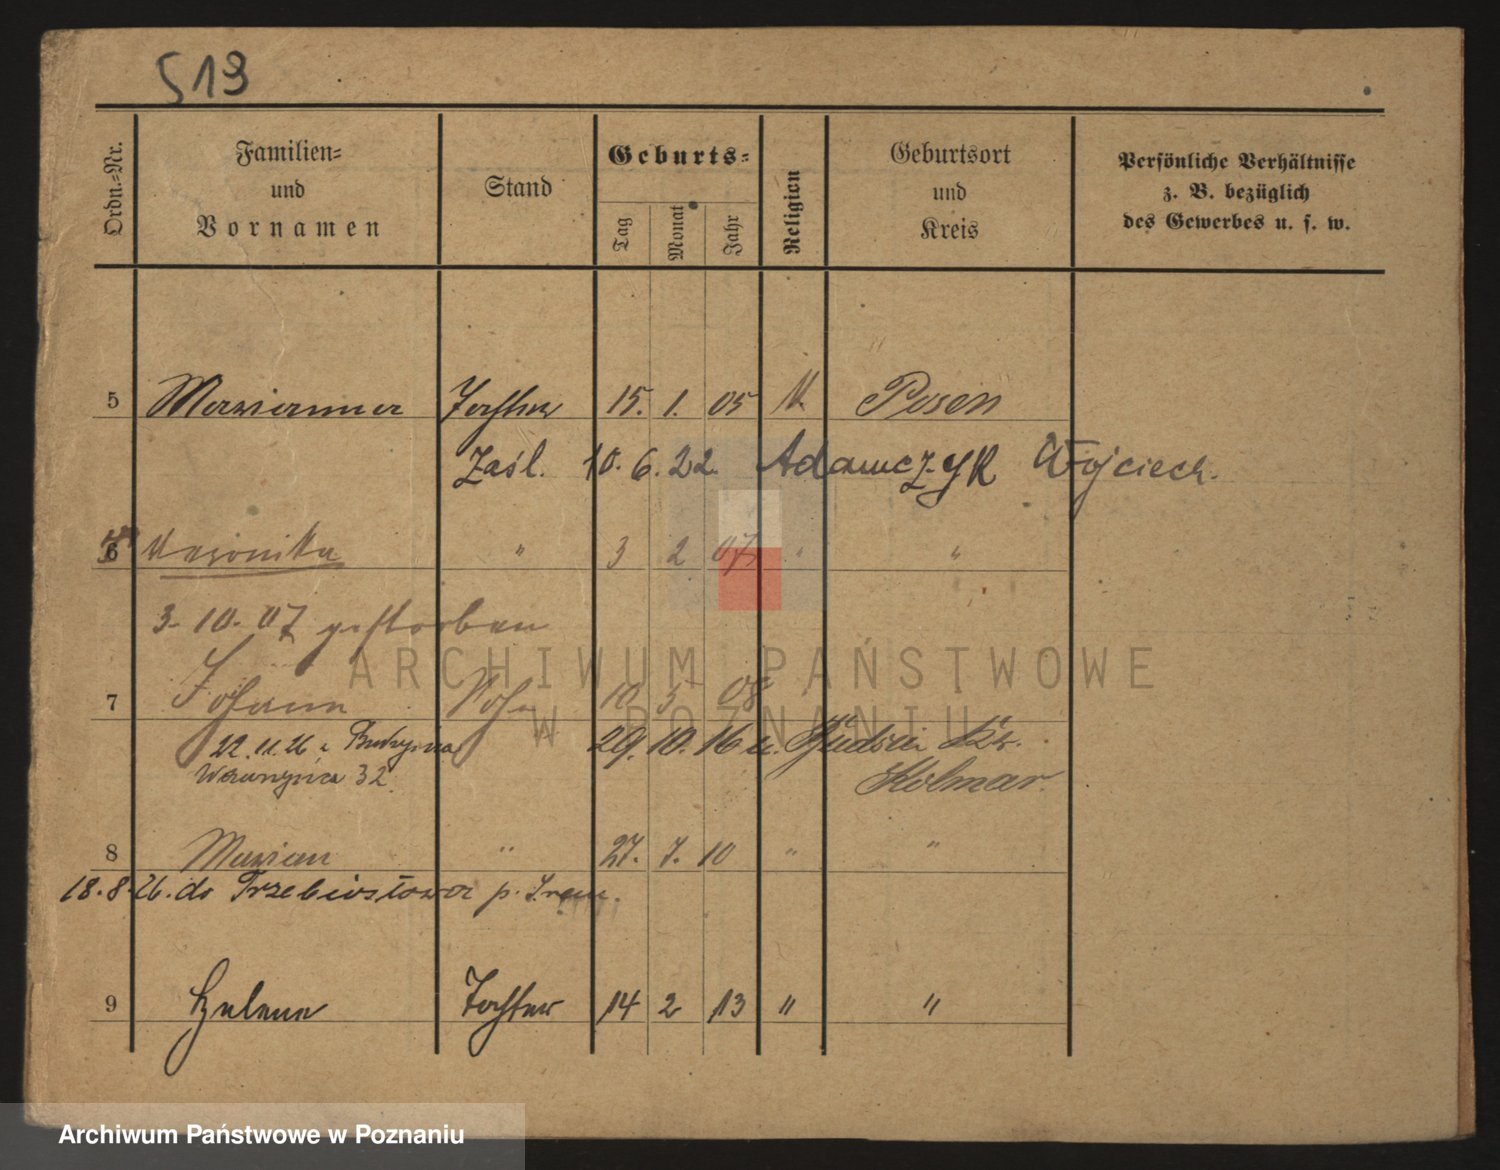 513
Ordn.-Nr.
Familien-
und
Vornamen
Stand
Geburts-
Tag
Monat
Jahr
Religion
Geburtsort
und
Kreis
Persönliche Verhältnisse
z. B. bezüglich
des Gewerbes u. s. w.
5 Marianna Tochter 15. 1. 05 K. Posen
Zaśl. 10. 6. 22. Adamczyk Wojciech.
6 Weronika " 3 2 07 " "
3. 10. 07 gestorben
7 Johann Sohn 10 5 08
22. 11. 26 29. 10. 16 Kr.
32 Kolmar.
8 Marian " 27. 7. 10 " "
18. 8. 26. do Trzebiosłowa p. Śrem.
9 Helene Tochter 14 2 13 " "
ARCHIWUM PAŃSTWOWE
W POZNANIU
Archiwum Państwowe w Poznaniu